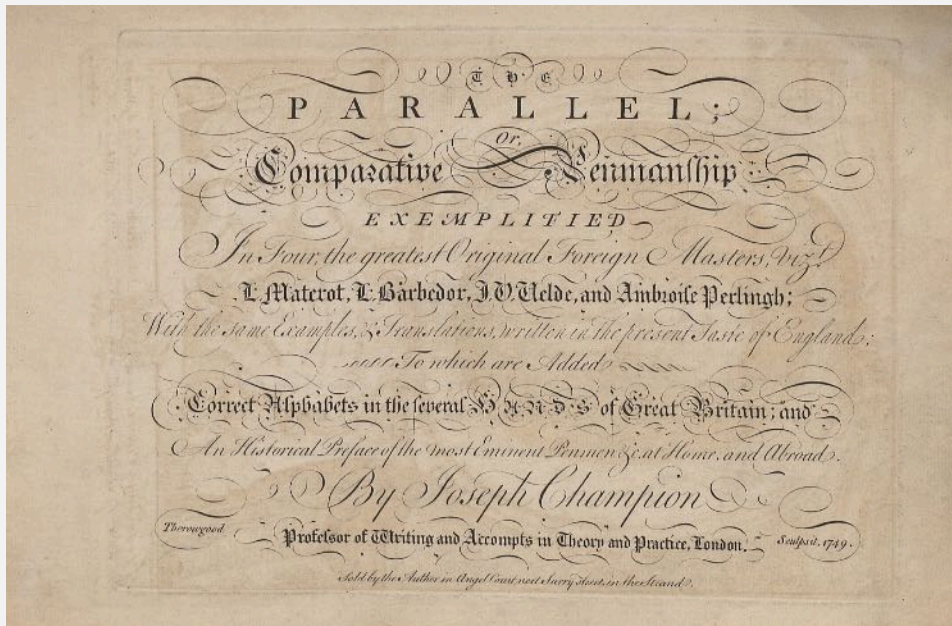 THE
PARALLEL;
Or,
Comparative Penmanship
EXEMPLIFIED
In Four, the greatest Original Foreign Masters, vizt.
L. Materot, L. Barbedor, J. V. Velde, and Ambroise Perlingh;
With the same Examples, & Translations, written in the present Taste of England:
To which are Added
Correct Alphabets in the several HANDS of Great Britain; and
An Historical Preface of the most Eminent Penmen &c. at Home, and Abroad.
By Joseph Champion
Professor of Writing and Accompts in Theory and Practice, London.
Thorowgood
Sculpsit. 1749.
Sold by the Author in Angel Court next Surry street, in the Strand.